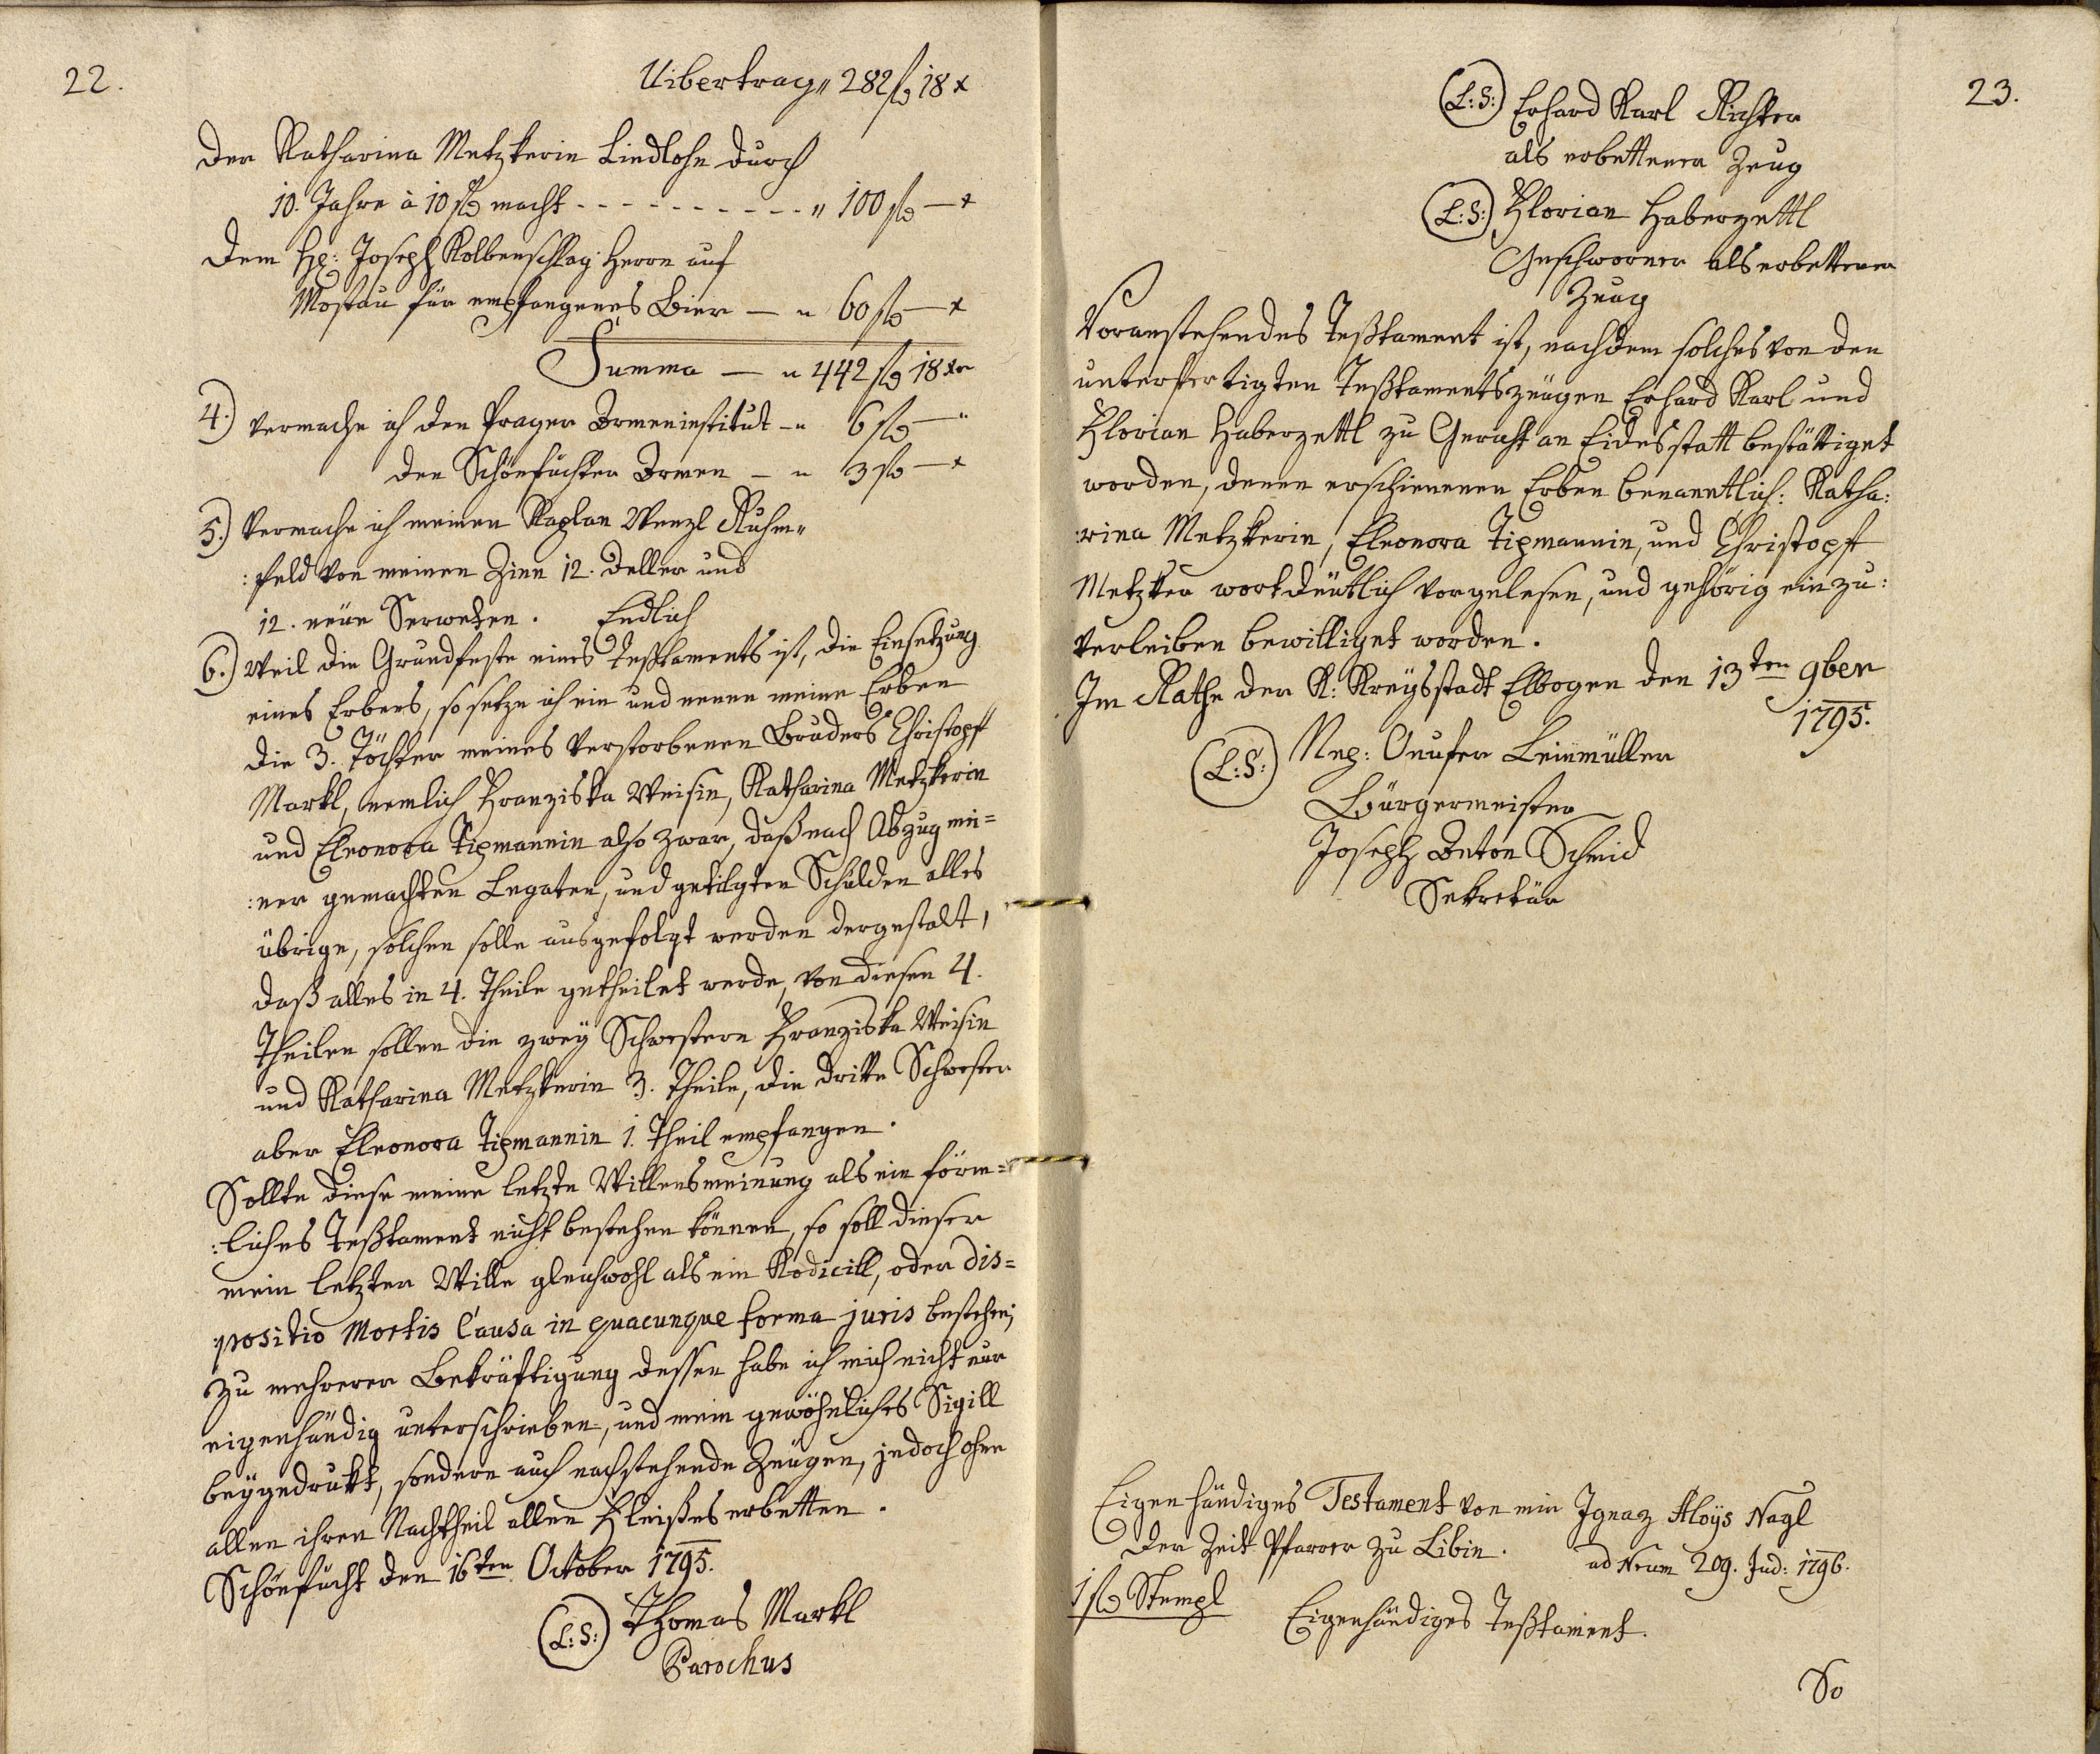 22.
Uibertrag„ 282 fl 18 x
Der Katharina Metzkerin Liedlohn durch
10. Jahre à 10 fl macht - - - - - - - - - - „ 100 fl — x
Dem H: Joseph Kolbenschlag Herrn auf
Mostau für empfangenes Bier — „ 60 fl — x
Summa — „ 442 fl 18 xr
4.) vermache ich den Prager Armeninstitut — „ 6 fl — „
den Schönfichter Armen — „ 3 fl — x
5.) Vermache ich meinen Kaplan Wenzl Ruhm„
:feld von meinen Zinn 12. Deller und
12. neue Serweten. Endlich
6.) Weil die Grundfeste eines Teßtaments ist, die Einsetzung
eines Erbens, so setze ich ein und nenne meine Erben
die 3. Töchter meines verstorbenen Bruders Christoph
Markl, nemlich Franziska Weisin, Katharina Metzkerin
und Eleonora Tipmannin also zwar, daß nach Abzug mei=
:ner gemachten Legaten, und getilgten Schulden alles
übrige, solchen solle ausgefolgt werden dergestalt,
daß alles in 4. Theile getheilet werde, von diesen 4.
Theilen sollen die zwey Schwestern Franziska Weisin
und Katharina Metzkerin 3. Theile, die dritte Schwester
aber Eleonora Tipmannin 1. Theil empfangen.
Sollte diese meine letzte Willensmeinung als ein förm=
:liches Teßtament nicht bestehen können, so soll dieser
mein letzter Wille gleichwohl als ein Kodicill, oder dis=
positio Mortis Causa in quacunque forma juris bestehen;
Zu mehrerer Bekräftigung dessen habe ich mich nicht nur
eigenhändig unterschrieben, und mein gewöhnliches Sigill
beygedrukt, sondern auch nachstehende Zeugen, jedoch ohne
allen ihren Nachtheil allen Fleißes erbetten.
Schönficht den 16ten October 1795.
(L:S:) Thomas Markl
Parochus
23.
(L:S:) Erhard Karl Richter
als erbettener Zeug
(L:S:) Florian Haberzettl
Geschworner als erbettener
Zeug
Voranstehendes Teßtament ist, nachdem solches von den
unterfertigten Teßtamentszeugen Erhard Karl und
Florian Haberzettl zu Gericht an Eidesstatt bestättiget
worden, denen erschienenen Erben benanntlich: Katha:
:rina Metzkerin, Eleonora Tipmannin, und Christoph
Metzker wortdeutlich vorgelesen, und gehörig einzu:
verleiben bewilliget worden.
Im Rathe der K: Kreysstadt Elbogen den 13ten 9ber
1795.
(L:S:) Nep: Onufer Leinmüller
Bürgermeister
Joseph Anton Schmid
Sekretär
Eigenhändiges Testament von mir Ignaz Aloys Nagl
der Zeit Pfarrer zu Libin. ad Nrum 209. Jud: 1796.
1 fl Stempl
Eigenhändiges Teßtament.
So